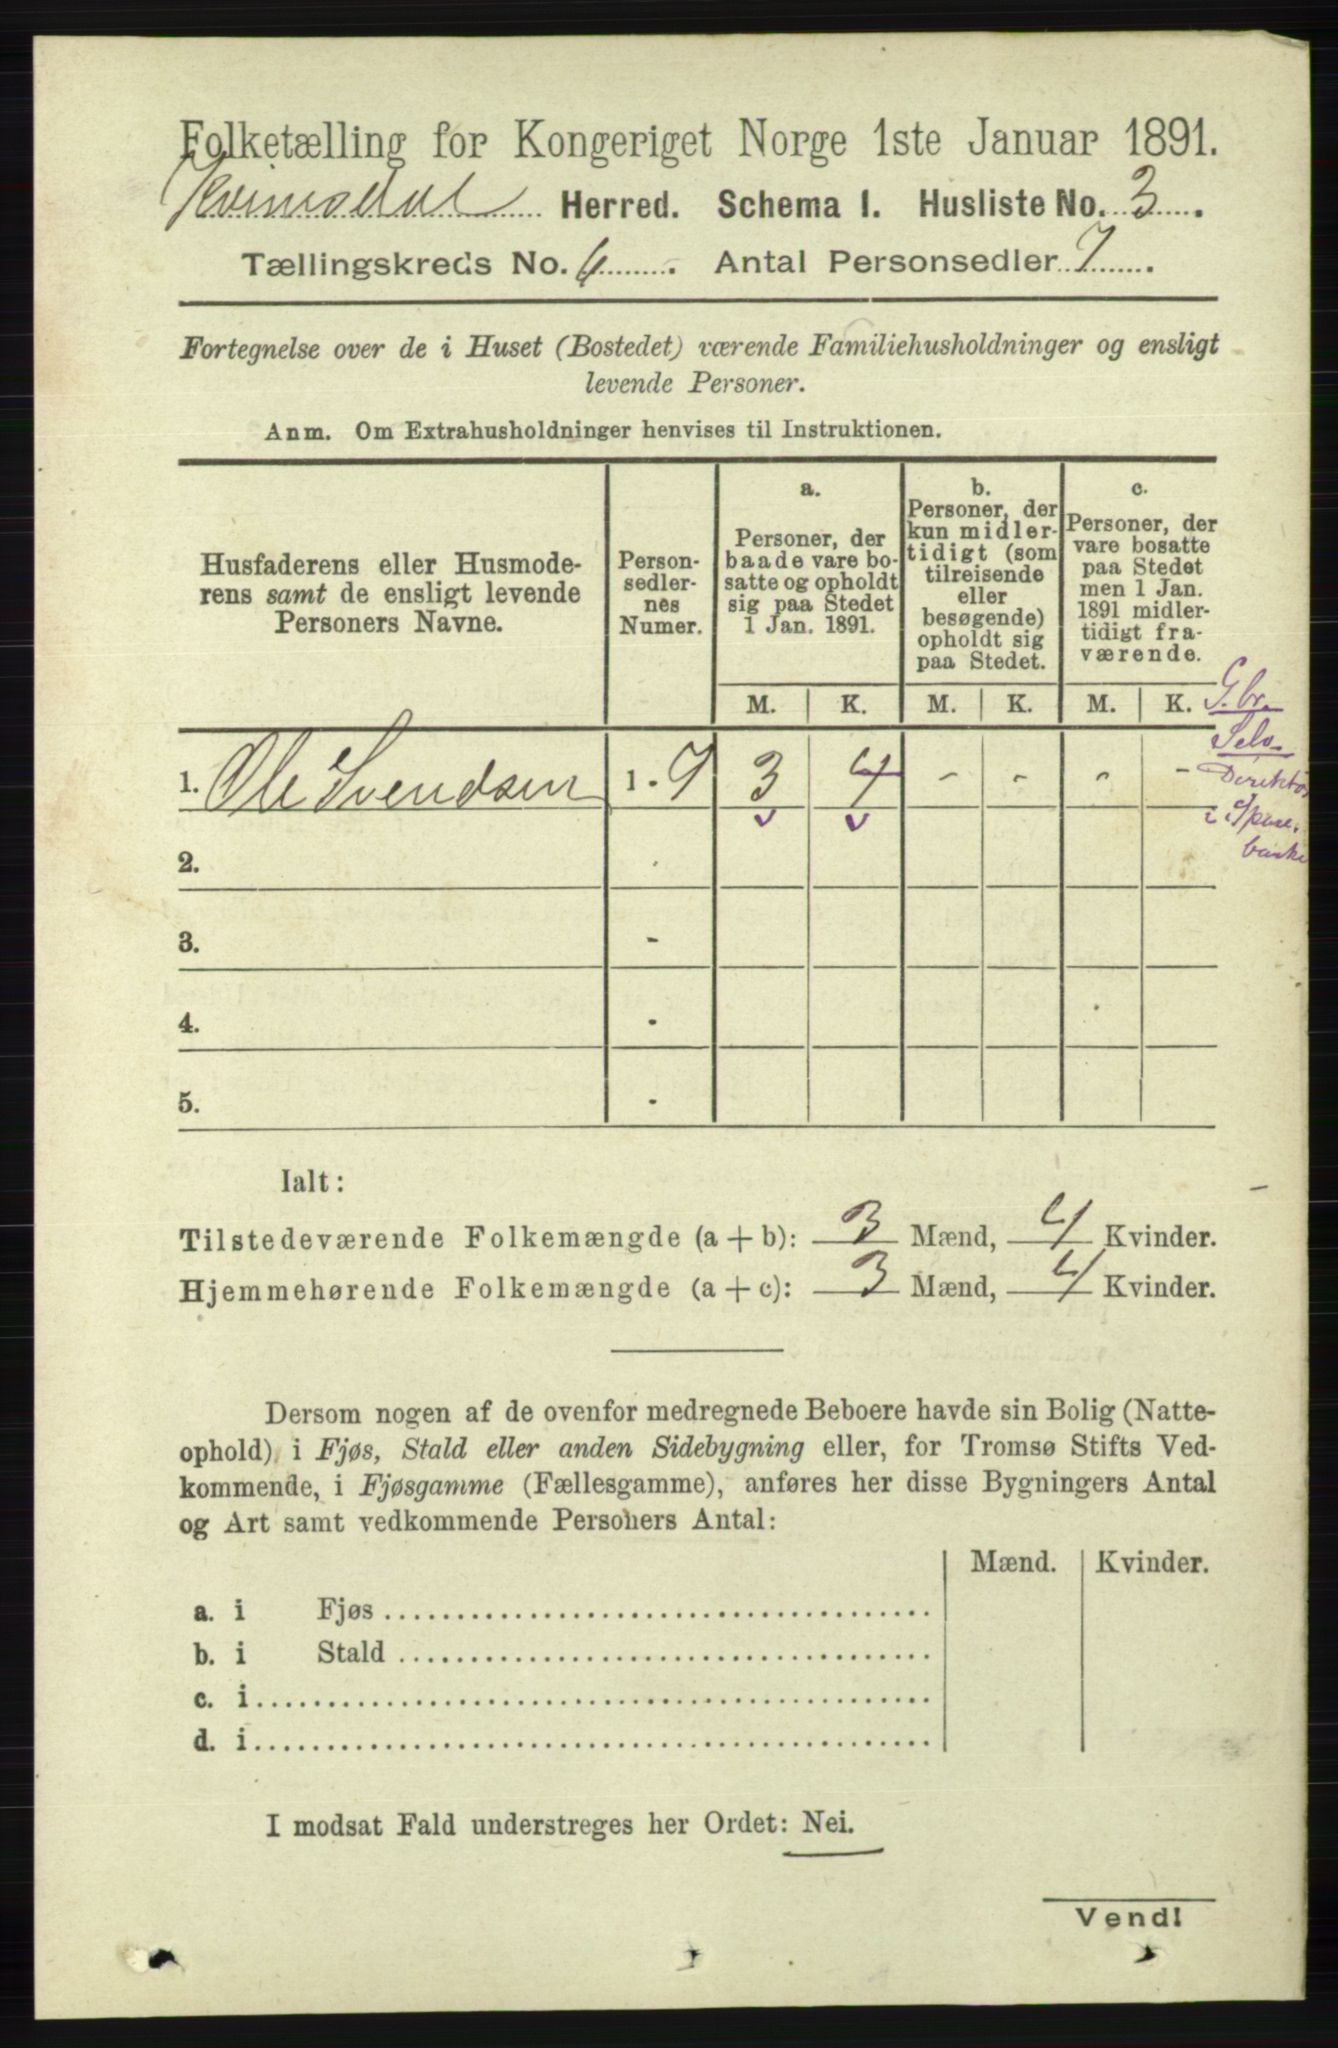 Folketælling for Kongeriget Norge 1ste Januar 1891.
Herred. Schema I. Husliste No. 3
Tællingskreds No. 6. Antal Personsedler 7
Fortegnelse over de i Huset (Bostedet) værende Familiehusholdninger og ensligt
levende Personer.
Anm. Om Extrahusholdninger henvises til Instruktionen.
Husfaderens eller Husmode-
rens samt de ensligt levende
Personers Navne.
Person-
sedler-
nes
Numer.
a.
Personer, der
baade vare bo-
satte og opholdt
sig paa Stedet
1 Jan. 1891.
b.
Personer, der
kun midler-
tidigt (som
tilreisende
eller
besøgende)
opholdt sig
paa Stedet.
c.
Personer, der
vare bosatte
paa Stedet
men 1 Jan.
1891 midler-
tidigt fra-
værende.
M. K. M. K. M. K.
G.br.
Selv.
1. Ole Svendsen 1 - 7 3 4 - - - -
Direktör
i Spare.
banke
2.
3. -
4. -
5. -
Ialt:
Tilstedeværende Folkemængde (a + b): 3 Mænd, 4 Kvinder.
Hjemmehørende Folkemængde (a + c): 3 Mænd, 4 Kvinder.
Dersom nogen af de ovenfor medregnede Beboere havde sin Bolig (Natte-
ophold) i Fjøs, Stald eller anden Sidebygning eller, for Tromsø Stifts Ved-
kommende, i Fjøsgamme (Fællesgamme), anføres her disse Bygningers Antal
og Art samt vedkommende Personers Antal:
Mænd. Kvinder.
a. i Fjøs
b. i Stald
c. i
d. i
I modsat Fald understreges her Ordet: Nei.
Vend!